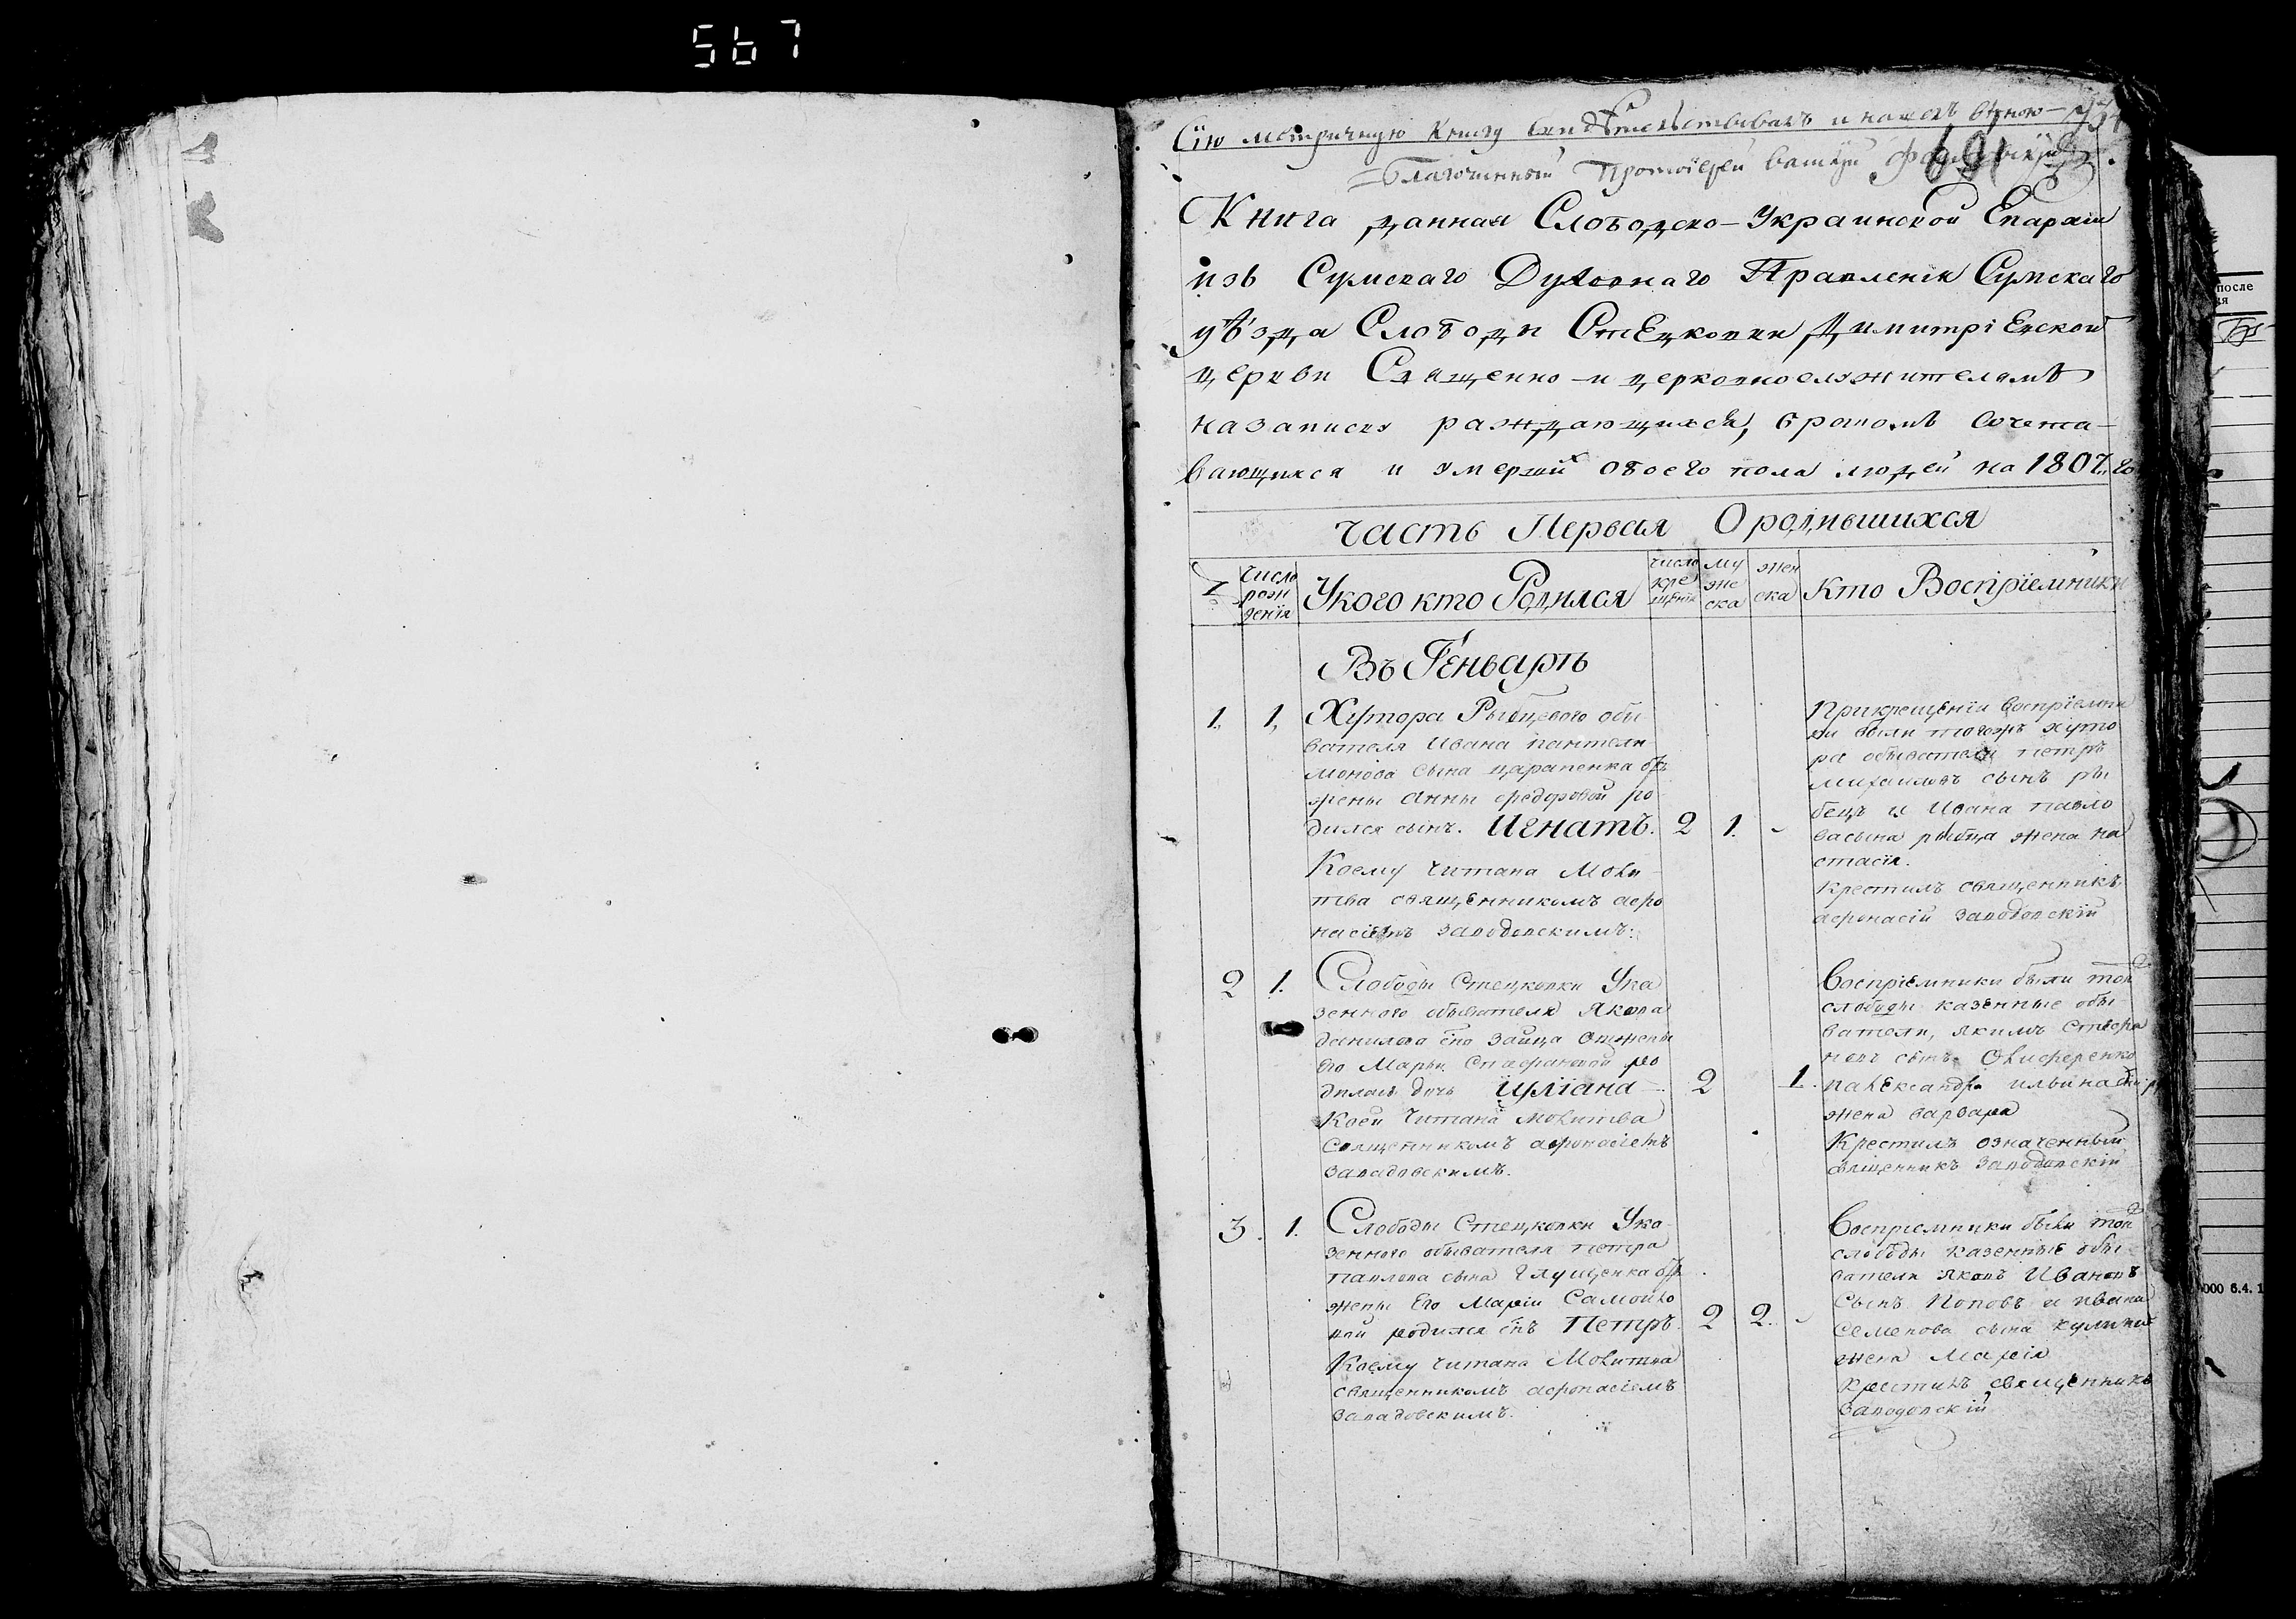 567
Сїю метричную Книгу свидѣтельствовалъ и нашелъ вѣрною
Благочинный Протоїерей
691
Книга данная Слободско-Украинской Епархїи
изъ Сумскаго Духовнаго Правленїя Сумскаго
уѣзда Слободы Стецковки Димитрїевской
церкви Священно и церковнослужителямъ
на записку раждающихся, бракомъ сочета-
вающихся и умершихъ обоего пола людей на 1807. го
Часть Первая О родившихся
№ Число рождения У кого кто Родился число крещения мужеска женска Кто Воспрїемники
Въ Генварѣ
1. 1, Хутора Рыбцевого обы
вателя Ивана пантели
монова сына царапенка отъ
жены Анны федоровой ро
дился сынъ. Игнатъ. 2 1.
Коему Читана Моли-
тва священникомъ афо
насіемъ Заводовскимъ:
При крещенїи воспрїемни
ки были тогожъ хуто
ра обыватели петръ
михаиловъ сынъ ры
бецъ и Ивана павло
ва сына рыбца жена на
стасїя.
Крестилъ священникъ
афонасїй Заводовскїй
2 1. Слободы Стецковки Ука
зенного обывателя Якова
данилова сна Зайца от жены
его Марьи Стефановой ро
дилась дочь Иулїана 2 1.
Коей Читана молитва
Священникомъ афонасїемъ
Заводовскимъ.
Воспрїемники были той
слободы казенные обы
ватели, якимъ Стефа
новъ сынъ Олиференко
и александра ильина
жена варвара
Крестилъ означенный
священникъ Заводовскїй
3. 1. Слободы Стецковки Ука-
зенного обывателя петра
павлова сына Глущенка отъ
жены Его Марїи Самойло
вой родился снъ Петръ. 2 2.
Коему Читана Молитва
священникомъ афонасїемъ
Заводовскимъ.
Воспрїемники были той
слободы казенные обы
ватели Яковъ Ивановъ
Сынъ Поповъ и ивана
Семенова сына
жена Марїя
Крестилъ священникъ
Заводовскїй
после
000 6.4. 1